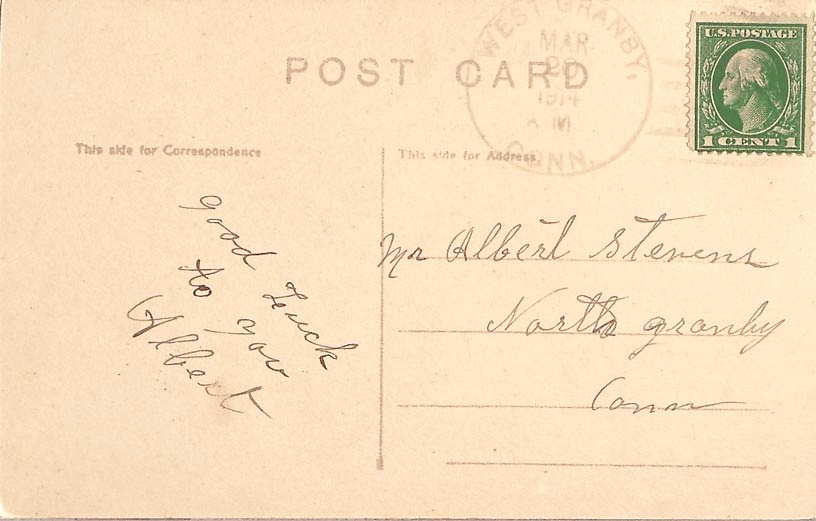 POST CARD
WEST GRANBY,
MAR
1914
A M
CONN.
U.S. POSTAGE
1 CENT 1
This side for Correspondence
This side for Address.
good Luck
to you
Albert
Mr Albert Stevens
North granby
Conn